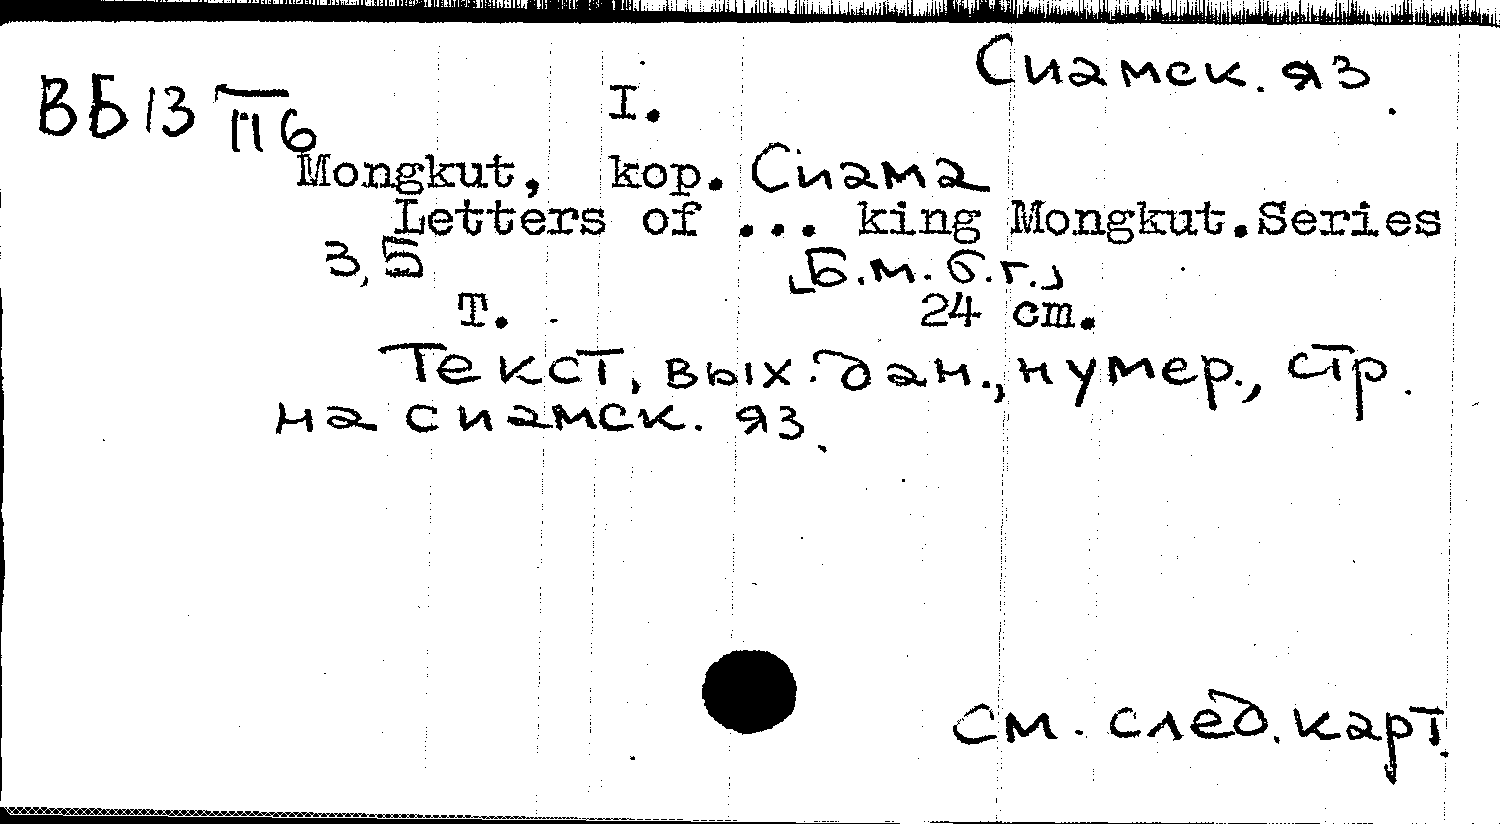 Сиамск. яз.
ВБ 13 III 6
I.
Mongkut, kop. Сиама
Letters of ... king Mongkut. Series
3, 5 [Б.м. б.г.]
T. 24 cm.
Текст, вых. дан., нумер., стр.
на сиамск. яз.
См. след. карт.